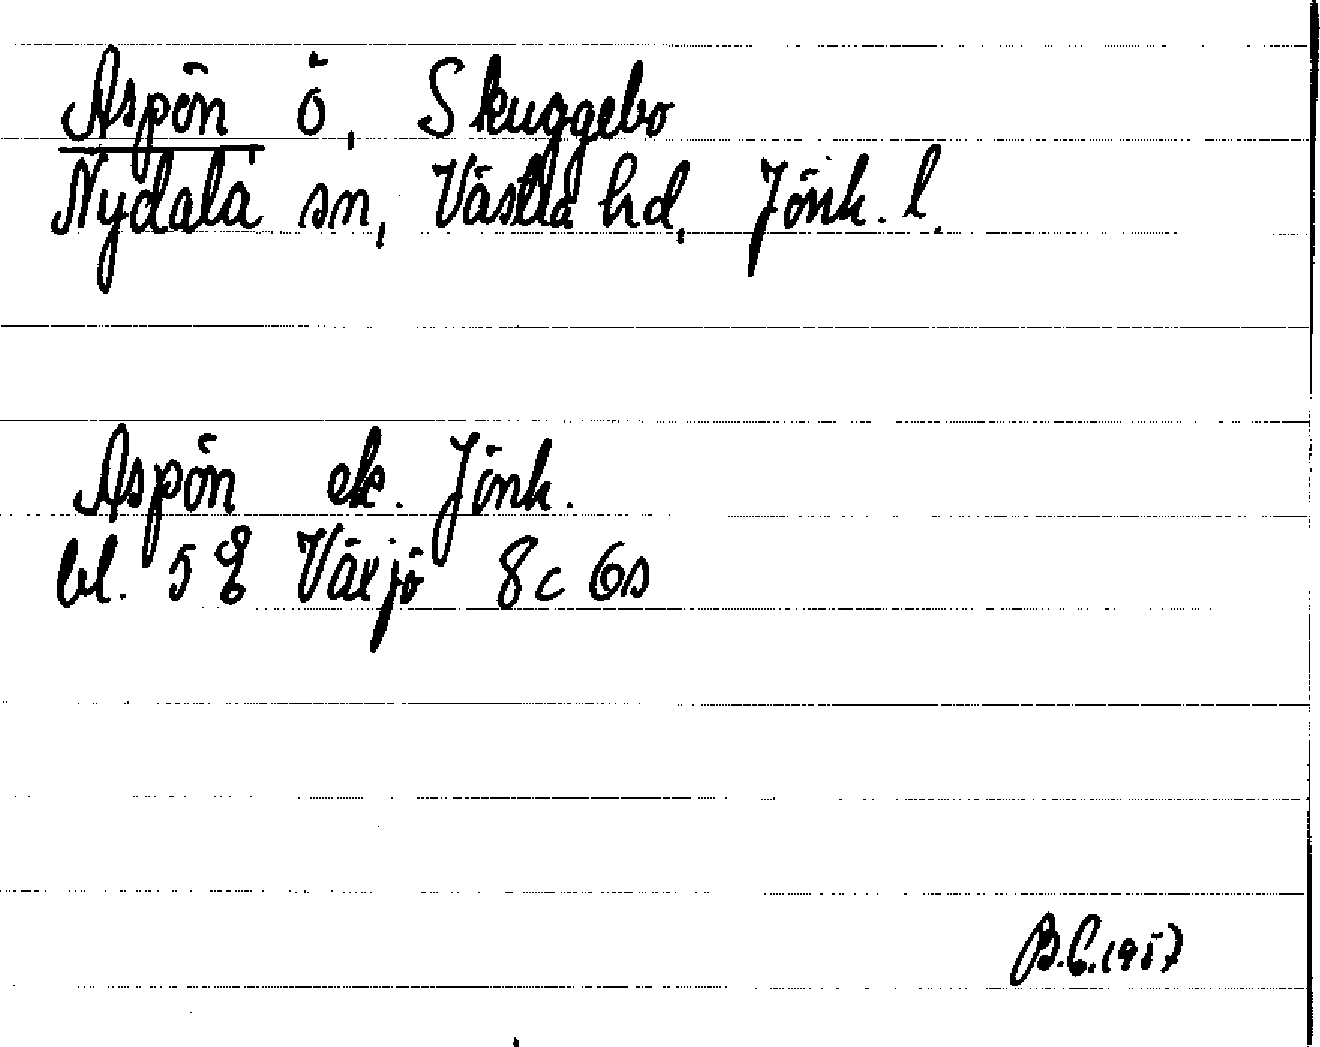 Aspön ö, Skuggebo
Nydala sn, Västra hd, Jönk. l.
Aspön ek. Jönk.
bl. 5 E Växjö 8c 6s
B.C. 1957